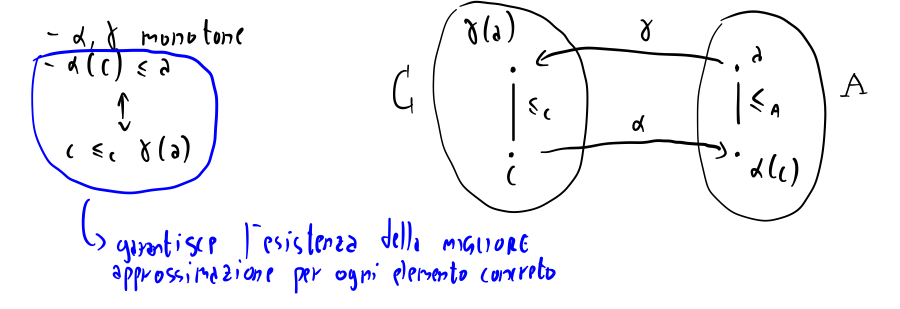 - α, γ monotone
- α(c) ≤ a
↕
c ≤c γ(a)
↳ garantisce l'esistenza della MIGLIORE
approssimazione per ogni elemento concreto
γ(a)
γ
a
C
≤c
≤A
A
α
c
α(c)